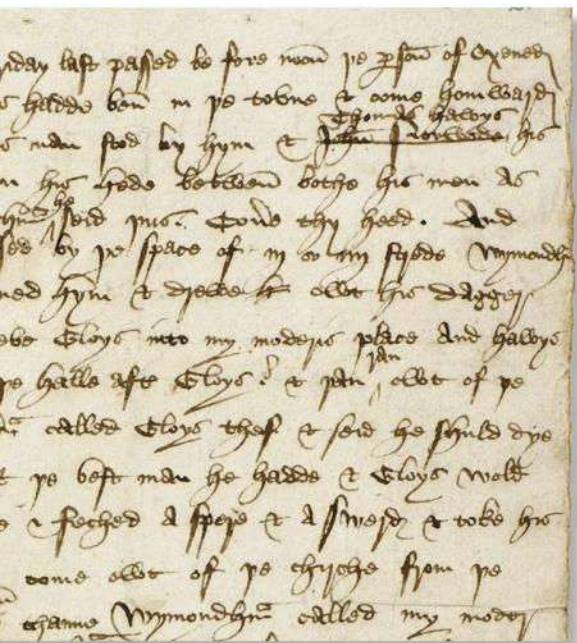 iday last passed be fore noon þe ꝑson of Oxened
hadde ben in þe towne & come homward
Thomas Hawys
man stod by hym & his
his hede betwen bothe his men as
he
seid þus. Cover thy heed. And
by þe space of iij or iiij strede Wymondhm
hym & drewe owt his dagger
Gloys into my moders place And Hawys
ran
þe halle aft Gloys & þan owt of þe
called Gloys thef & seid he schuld dye
þe best man he hadde & Gloys wold
& feched a spere & a swerd & toke his
come owt of þe chirche from þe
thanne Wymondhm called my moder